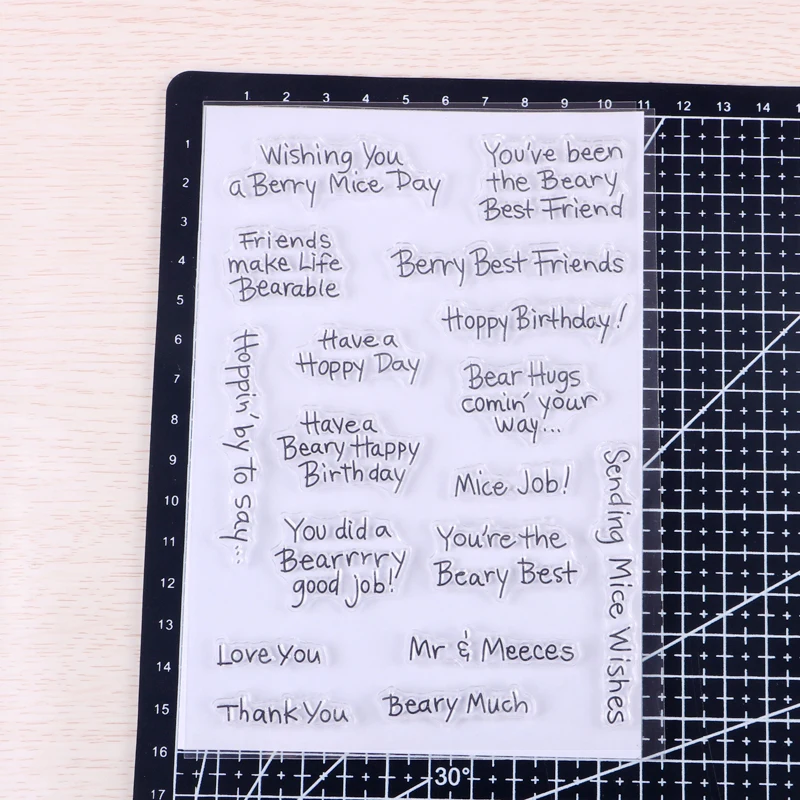 1 2 3 4 5 6 7 8 9 10 11 12 13 14
1
2
3
4
5
6
7
8
9
10
11
12
13
14
15
16
17
Wishing You
a Berry Mice Day
You've been
the Beary
Best Friend
Friends
make Life
Bearable
Berry Best Friends
Hoppy Birthday!
Have a
Hoppy Day
Hoppin' by to say...
Bear Hugs
comin' your
way...
Have a
Beary Happy
Birthday
Mice Job!
Sending Mice Wishes
You did a
Bearrrry
good job!
You're the
Beary Best
Love You
Mr & Meeces
Thank You
Beary Much
30°